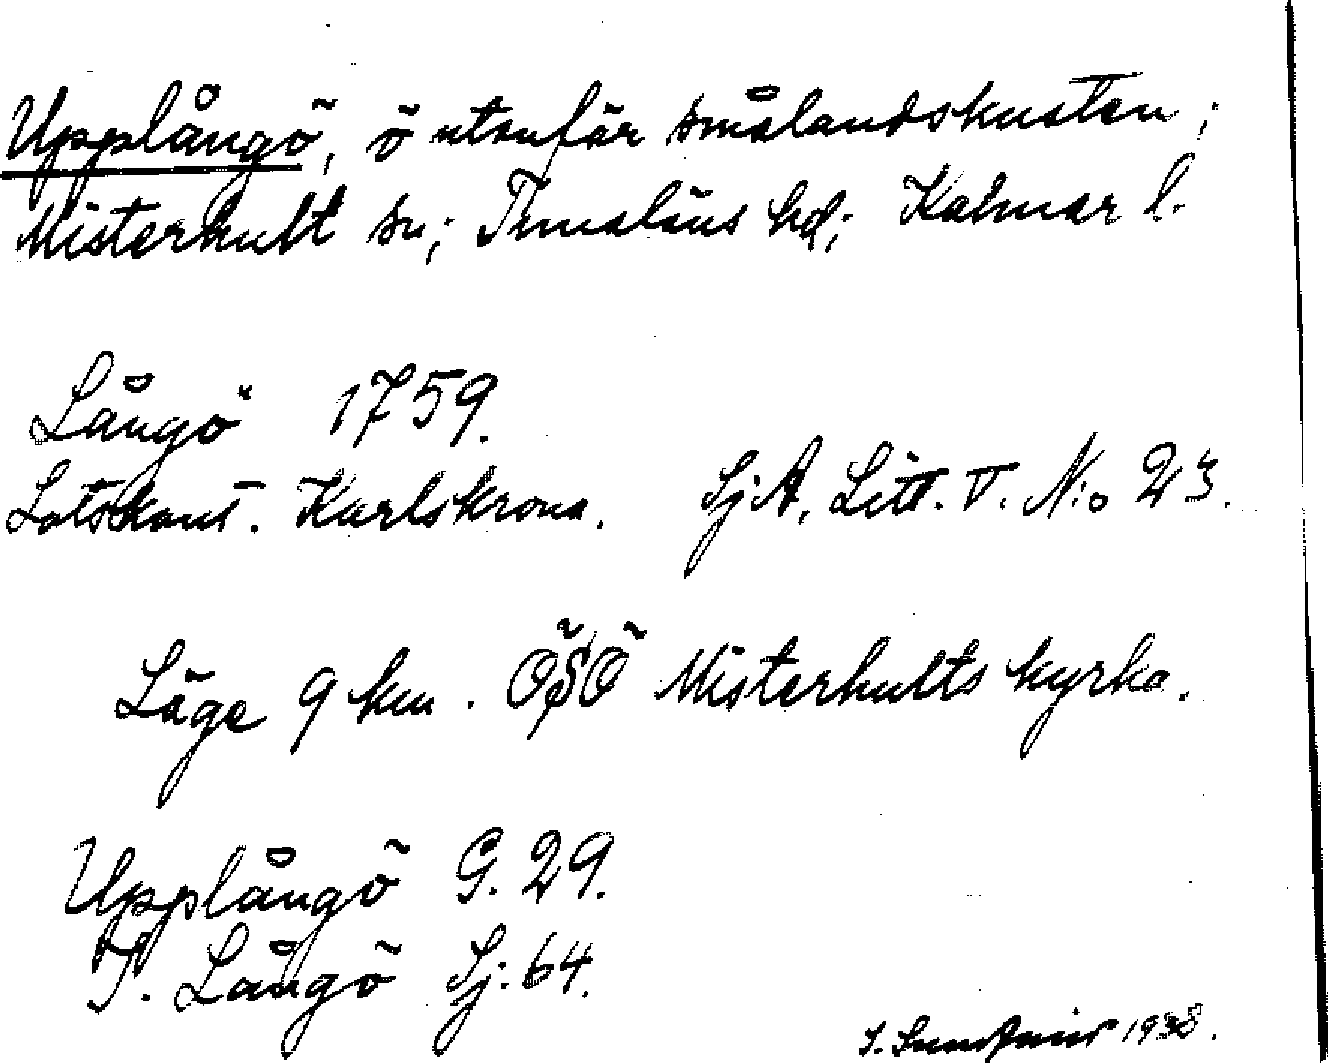 Upplångö, ö utanför smålandskusten;
Misterhult sn; Tunaläns hd; Kalmar l.
Långö 1759.
Lotskont. Karlskrona. Sj.A. Litt. V. N:o 23.
Läge 9 km. ÖSÖ Misterhults kyrka.
Upplångö G. 29.
T. Långö Sj. 64.
1938.